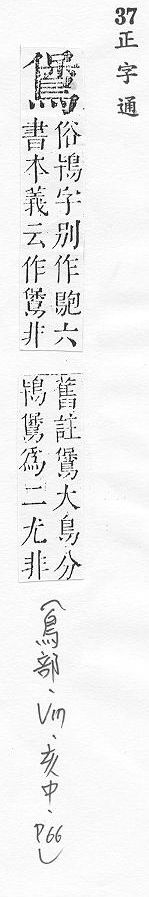 37正字通
俗鴇字別作六
書本義云作非
舊註大鳥分
鴇為二尤非
(鳥部、Vm、亥中、P66)